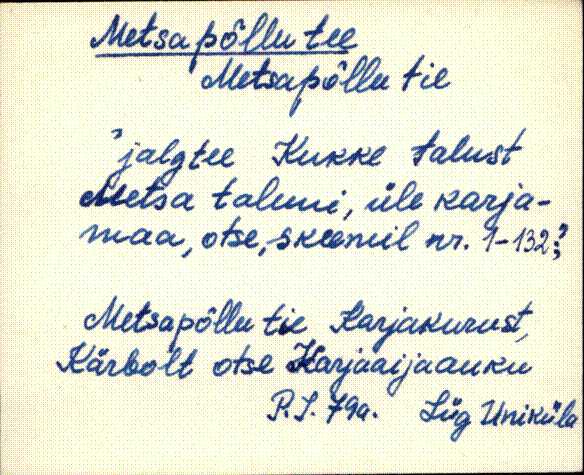 Metsapõllu tee
Metsapõllu tie
'jalgtee Kukke talust
Metsa taluni, üle karja-
maa, otse, skeemil nr. 1-132;'
Metsapõllu tie Karjakurust,
Kärbolt otse Karjaaijaauku
P.S. 79a. Lüg Uniküla